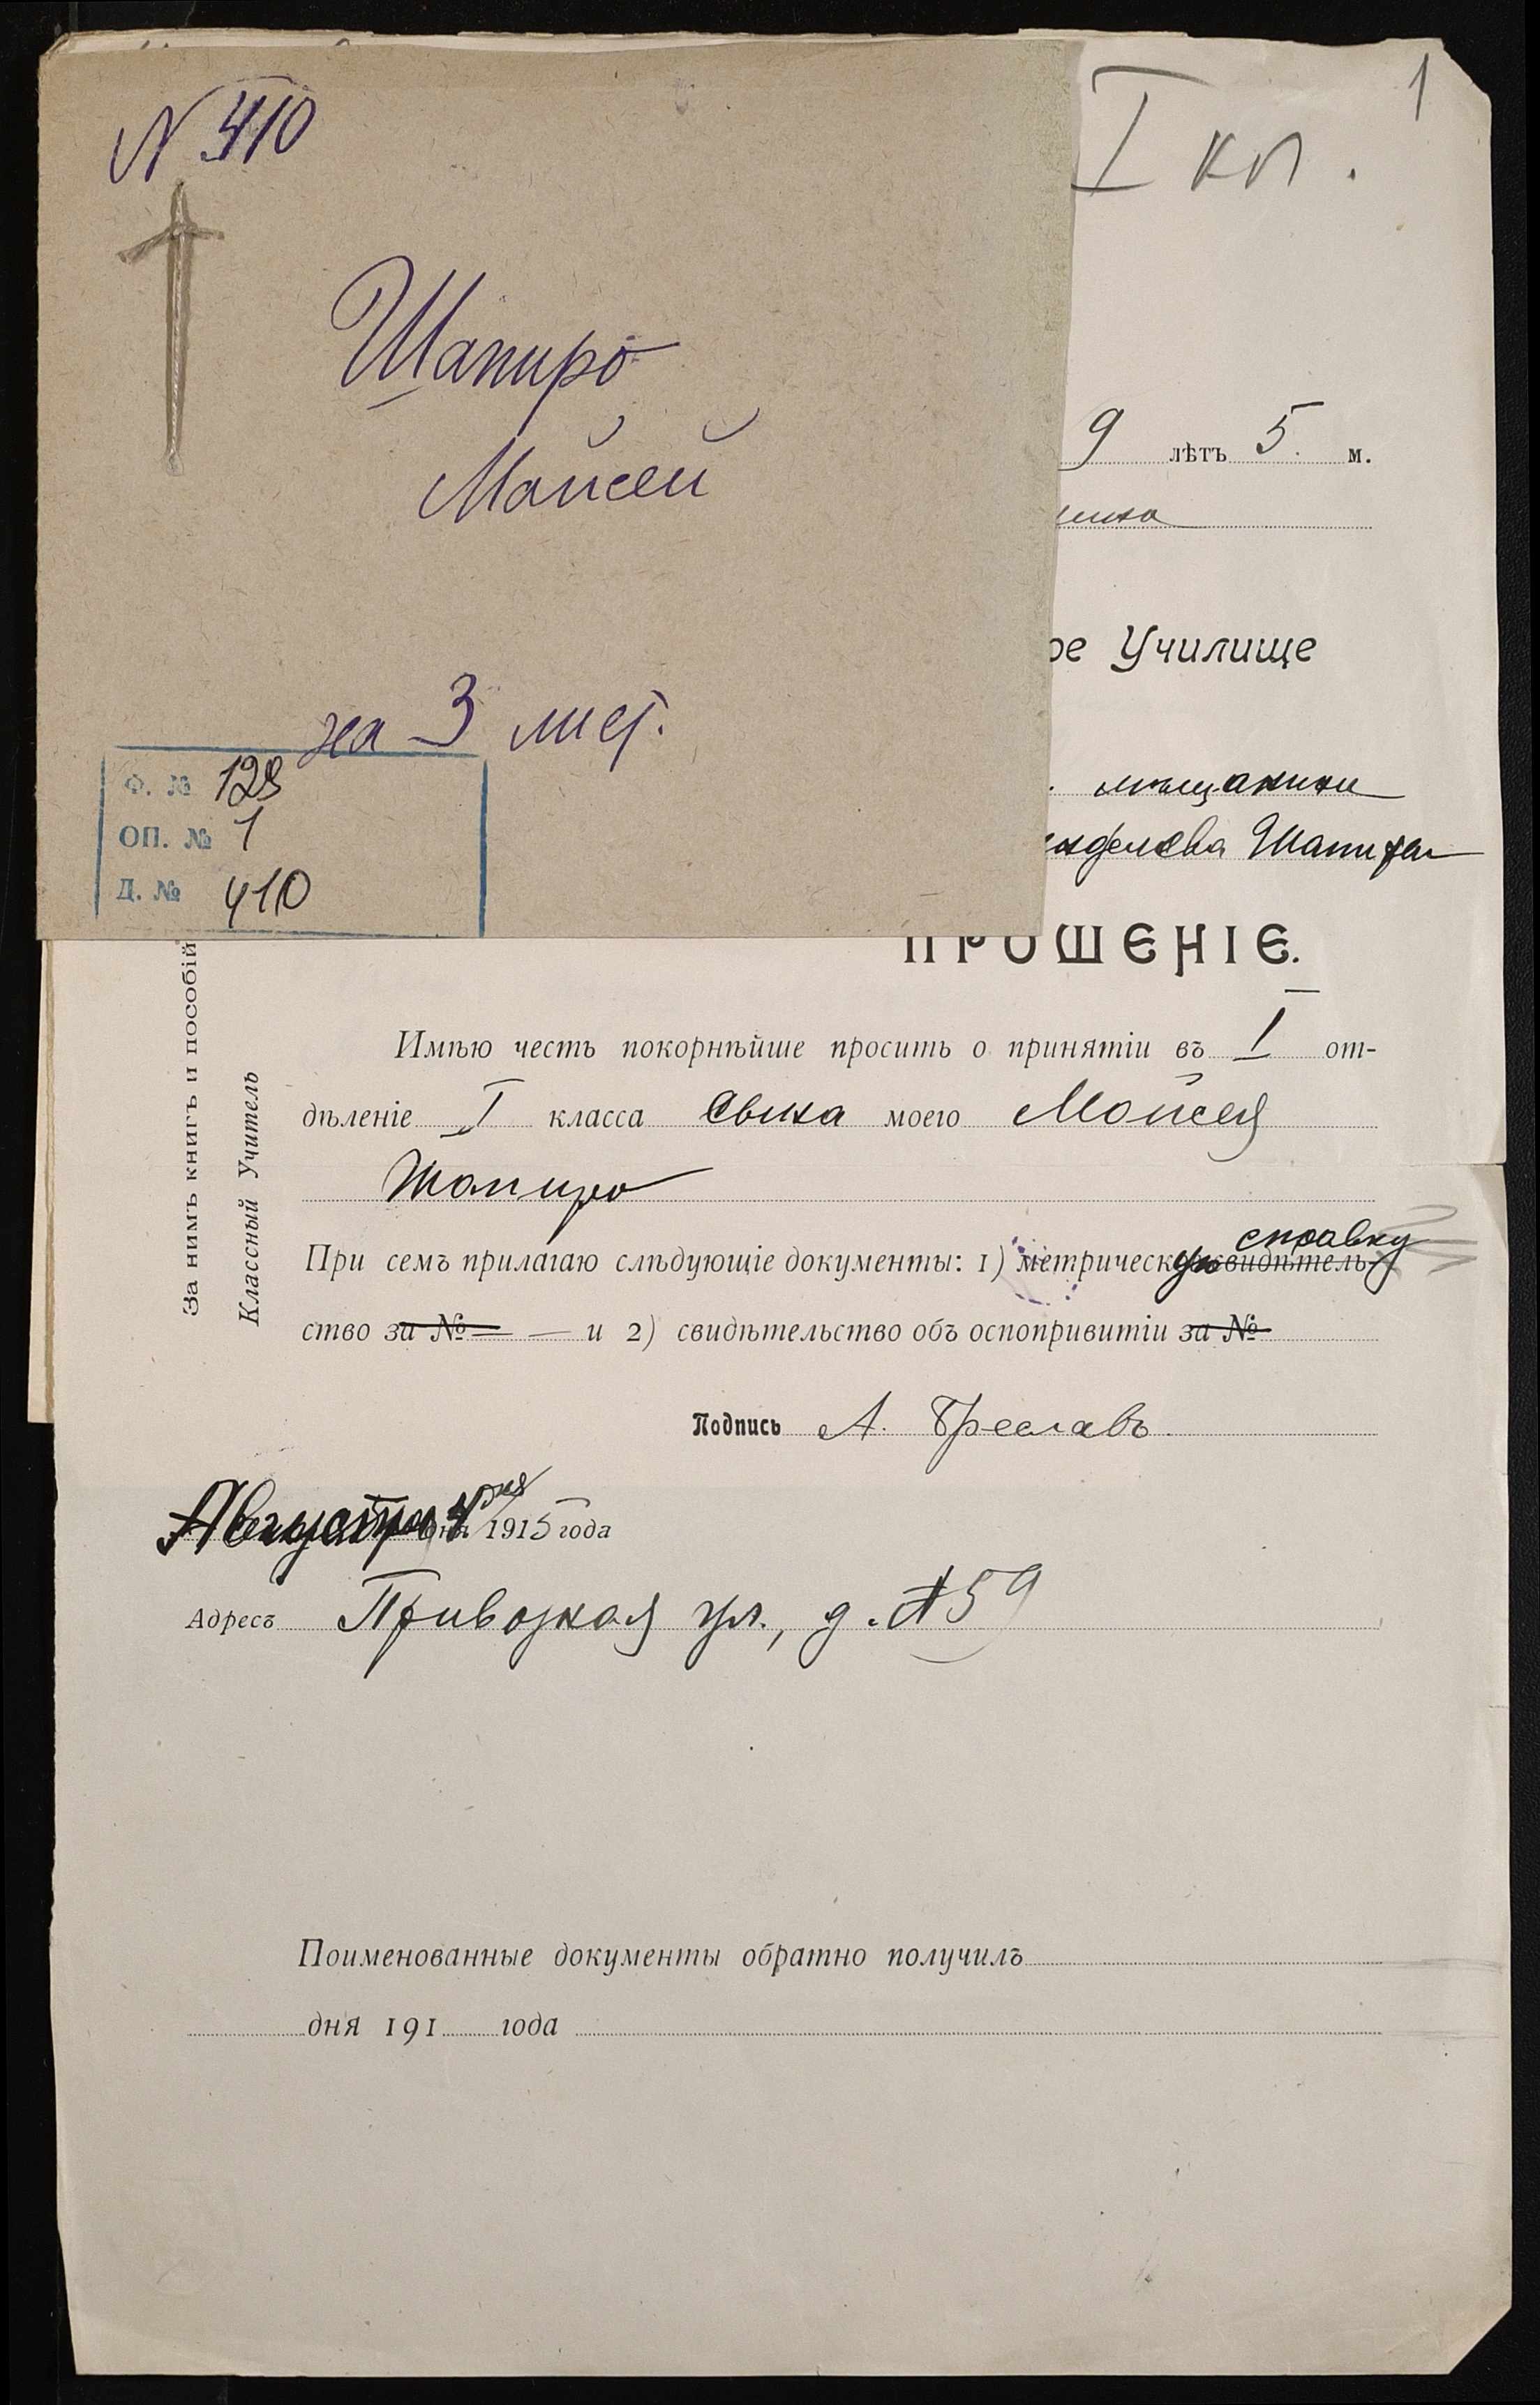 N 410
Шапиро
Мойсей
на 3 лист.
Ф. № 128
ОП. № 1
Д. № 410
1
I кл.
9 лѣтъ 5. м.
ое Училище
мѣщанини
Шапиро
ПРОШЕНІЕ.
За нимъ книгъ и пособій
Классный Учитель
Имѣю честь покорнѣйше просить о принятіи въ I от-
дѣленіе I класса сына моего Мойсея
Шапиро
справку
При семъ прилагаю слѣдующіе документы: 1) метрическую свидѣтель-
ство за № — и 2) свидѣтельство объ оспопривитіи за №
Подпись А. Бреславъ
Августа 4 дня 1915 года
Адресъ Привозная ул., д. № 59
Поименованные документы обратно получилъ
дня 191 года